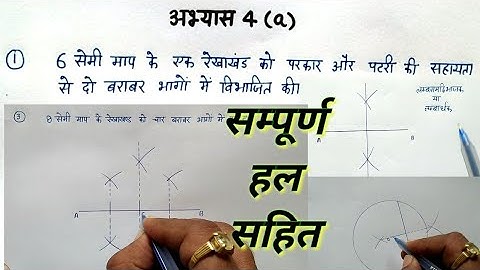 अभ्यास 4 (a)
① 6 सेमी माप के एक रेखाखंड को परकार और पटरी की सहायता
से दो बराबर भागों में विभाजित की।
③ 8 सेमी माप के रेखाखण्ड को चार बराबर भागों में
लम्बसमद्विभाजक
या
लम्बार्धक
A B
सम्पूर्ण
हल
सहित